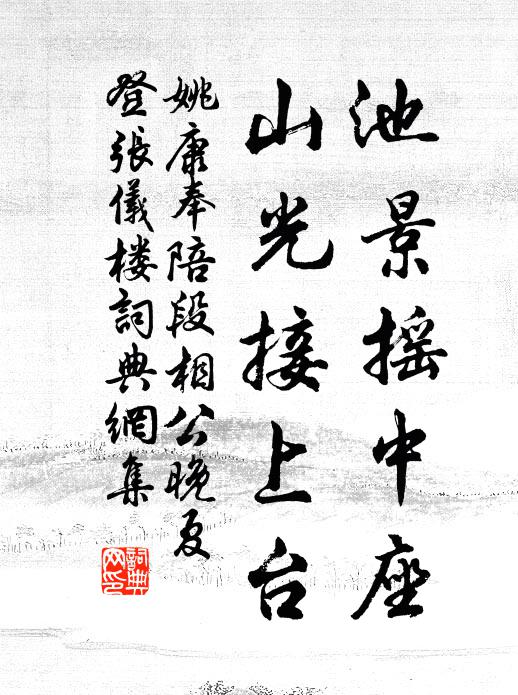 池景摇中座
山光接上台
姚康奉陪段相公晚夏
登張儀楼詞典網集
詞典
网印